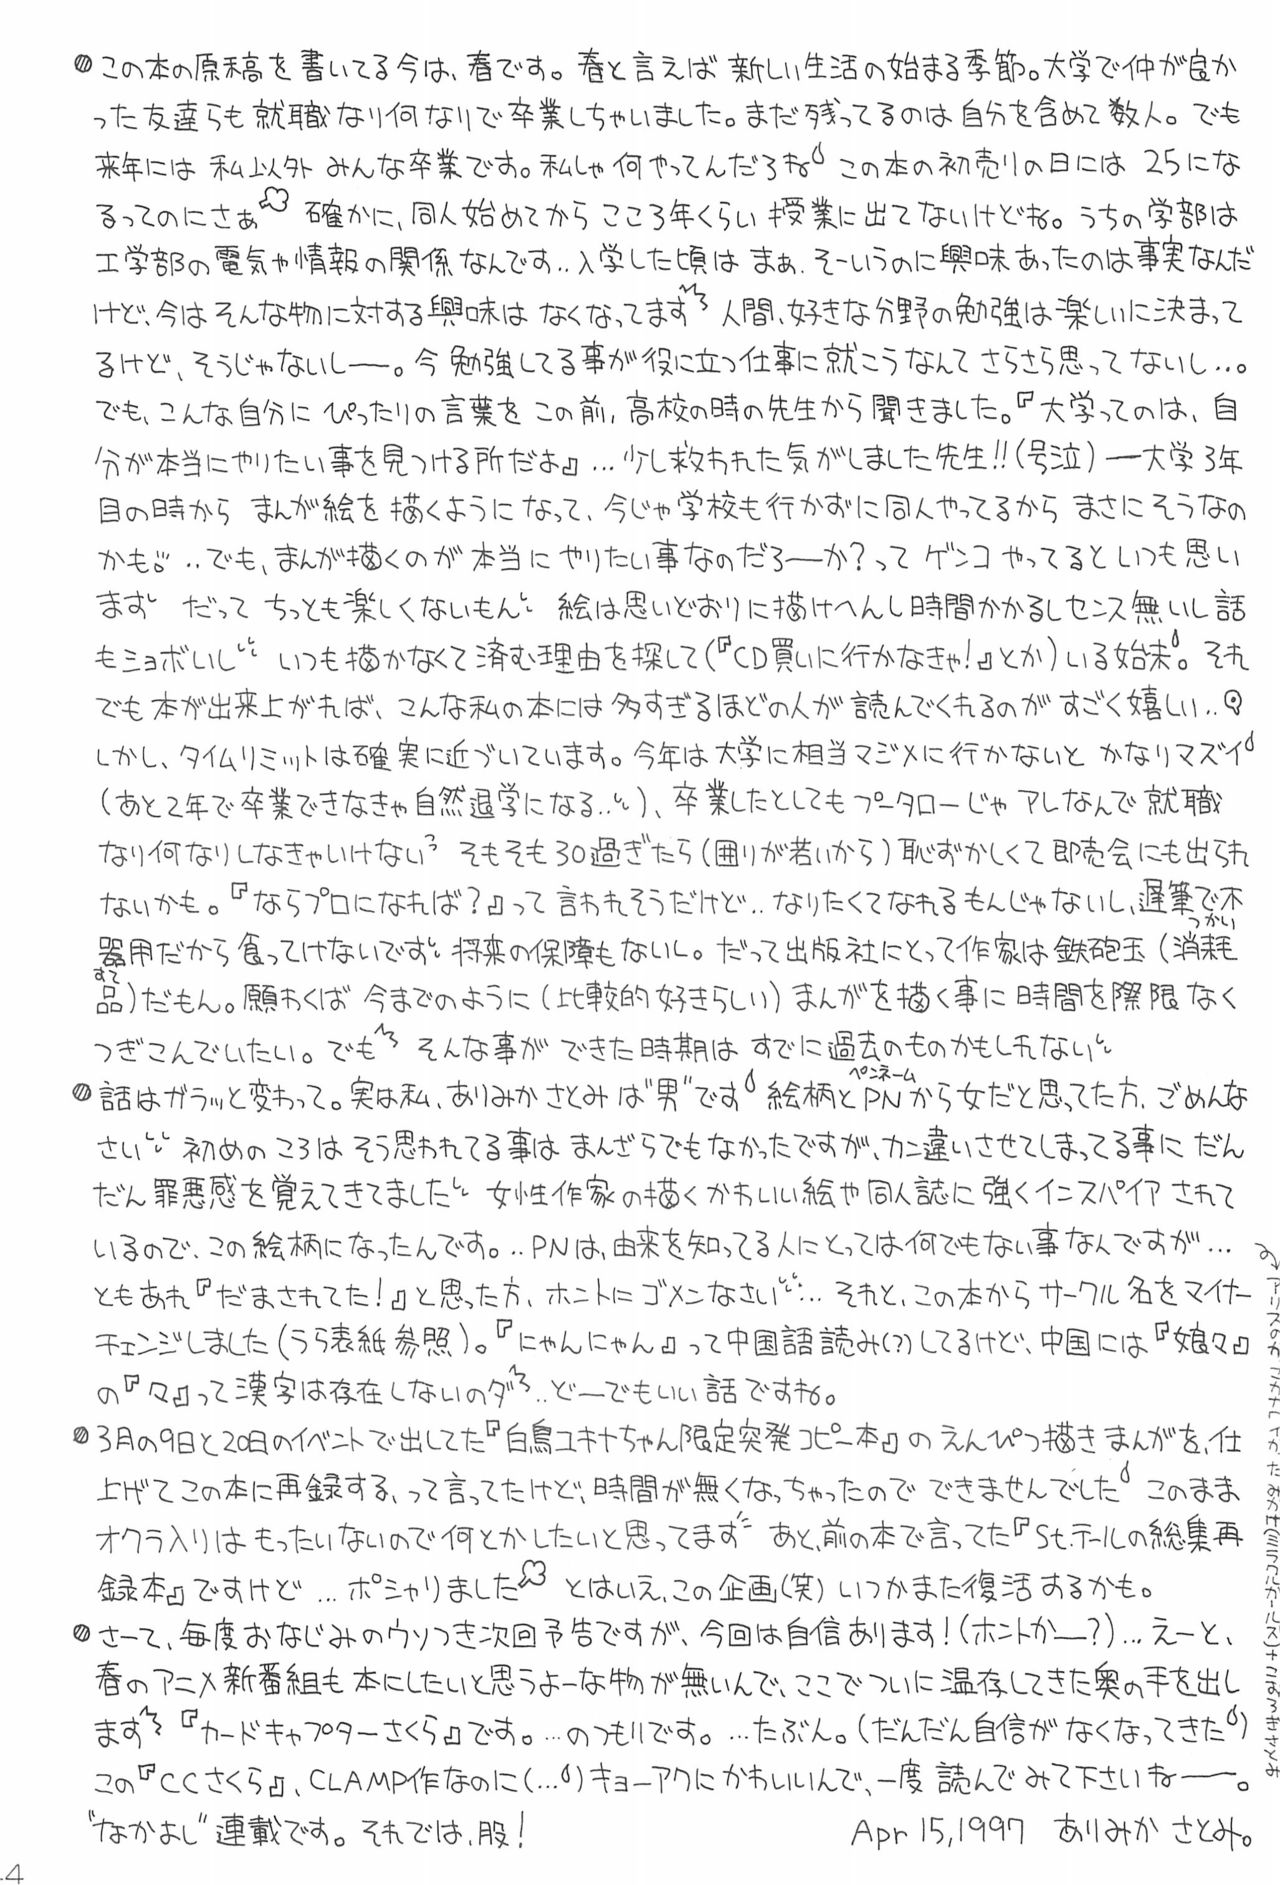 この本の原稿を書いてる今は、春です。春と言えば新しい生活の始まる季節。大学で仲が良か
った友達らも就職なり何なりで卒業しちゃいました。まだ残ってるのは自分を含めて数人。でも
来年には私以外みんな卒業です。私しゃ何やってんだろね この本の初売りの日には25にな
るってのにさぁ 確かに、同人始めてからここ3年くらい授業に出てないけどね。うちの学部は
工学部の電気や情報の関係なんです‥入学した頃はまぁ、そーいうのに興味あったのは事実なんだ
けど、今はそんな物に対する興味はなくなってます 人間、好きな分野の勉強は楽しいに決まって
るけど、そうじゃないしー。今勉強してる事が役に立つ仕事に就こうなんてさらさら思ってないし‥。
でも、こんな自分にぴったりの言葉をこの前、高校の時の先生から聞きました。『大学ってのは、自
分が本当にやりたい事を見つける所だよ』…少し救われた気がしました先生!!(号泣)ー大学3年
目の時からまんが絵を描くようになって、今じゃ学校も行かずに同人やってるからまさにそうなの
かも ‥でも、まんが描くのが本当にやりたい事なのだろーか?ってゲンコやってるといつも思い
ます だってちっとも楽しくないもん 絵は思いどおりに描けへんし時間かかるしセンス無いし話
もショボいし いつも描かなくて済む理由を探して(『CD買いに行かなきゃ!』とか)いる始末。それ
でも本が出来上がれば、こんな私の本には多すぎるほどの人が読んでくれるのがすごく嬉しい‥
しかし、タイムリミットは確実に近づいています。今年は大学に相当マジメに行かないとかなりマズイ
(あと2年で卒業できなきゃ自然退学になる‥)、卒業したとしてもプータローじゃアレなんで就職
なり何なりしなきゃいけない そもそも30過ぎたら(囲りが若いから)恥ずかしくて即売会にも出られ
ないかも。『ならプロになれば?』って言われそうだけど‥なりたくてなれるもんじゃないし、遅筆で不
器用だから食ってけないです 将来の保障もないし。だって出版社にとって作家は鉄砲玉(消耗
つかい
品)だもん。願わくば今までのように(比較的好きらしい)まんがを描く事に時間を際限なく
すて
つぎこんでいたい。でも そんな事ができた時期はすでに過去のものかもしれない
話はガラッと変わって。実は私、ありみかさとみは"男"です 絵柄とPNから女だと思ってた方、ごめんな
ペンネーム
さい 初めのころはそう思われてる事はまんざらでもなかったですが、カン違いさせてしまってる事にだん
だん罪悪感を覚えてきてました 女性作家の描くかわいい絵や同人誌に強くインスパイアされて
いるので、この絵柄になったんです。‥PNは、由来を知ってる人にとっては何でもない事なんですが…
ともあれ『だまされてた!』と思った方、ホントにゴメンなさい… それと、この本からサークル名をマイナー
チェンジしました(うら表紙参照)。『にゃんにゃん』って中国語読み(?)してるけど、中国には『娘々』
の『々』って漢字は存在しないのダ‥どーでもいい話ですね。
3月の9日と20日のイベントで出してた『白鳥ユキナちゃん限定突発コピー本』のえんぴつ描きまんがを、仕
上げてこの本に再録する、って言ってたけど、時間が無くなっちゃったのでできませんでした このまま
オクラ入りはもったいないので何とかしたいと思ってます あと、前の本で言ってた『St.テールの総集再
録本』ですけど…ポシャりました とはいえ、この企画(笑)いつかまた復活するかも。
さーて、毎度おなじみのウソつき次回予告ですが、今回は自信あります!(ホントかー?)…えーと、
春のアニメ新番組も本にしたいと思うよーな物が無いんで、ここでついに温存してきた奥の手を出し
ます 『カードキャプターさくら』です。…のつもりです。…たぶん。(だんだん自信がなくなってきた)
この『CCさくら』、CLAMP作なのに(…)キョーアクにかわいいんで、一度読んでみて下さいねー。
"なかよし"連載です。それでは、股!
Apr 15,1997 ありみかさとみ。
44